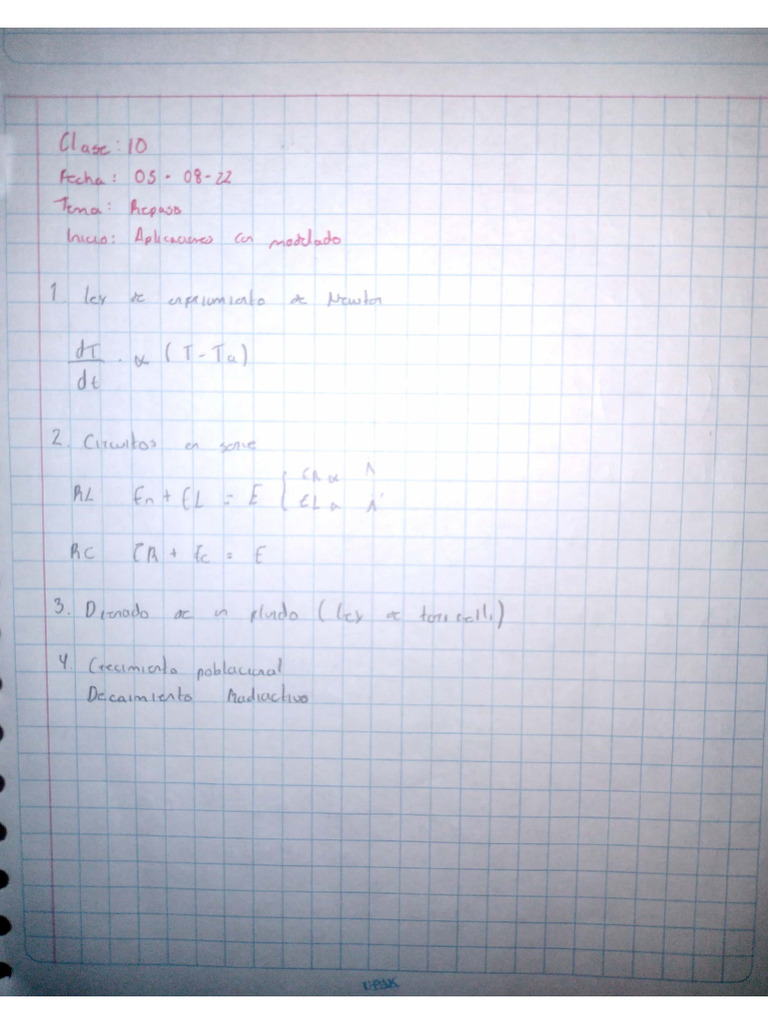 Clase: 10
Fecha: 05-08-22
Tema: Repaso
Inicio: Aplicaciones en modelado
1. Ley de enfriamiento de Newton
dT/dt ∝ (T - Ta)
2. Circuitos en serie
RL ER + EL = E { ER ∝
EL ∝
RC ER + Ec = E
3. Drenado de un fluido (Ley de toricelli)
4. Crecimiento poblacional
Decaimiento Radiactivo